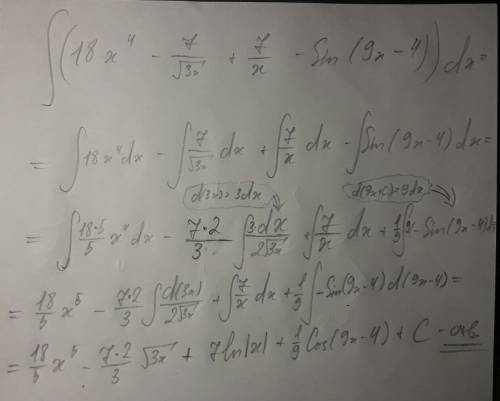 ∫(18x⁴ - 7/√3x + 7/x - Sin(9x-4))dx=
= ∫18x⁴dx - ∫7/√3x dx + ∫7/x dx - ∫Sin(9x-4)dx=
d(3x)=3dx d(9x+c)=9dx
= ∫18·5/5 x⁴dx - 7·2/3 ∫3dx/2√3x + ∫7/x dx + 1/9 ∫9·-Sin(9x-4)dx
= 18/5 x⁵ - 7·2/3 ∫d(3x)/2√3x + ∫7/x dx + 1/9 ∫-Sin(9x-4)d(9x-4)=
= 18/5 x⁵ - 7·2/3 √3x + 7ln|x| + 1/9 Cos(9x-4) + C - отв